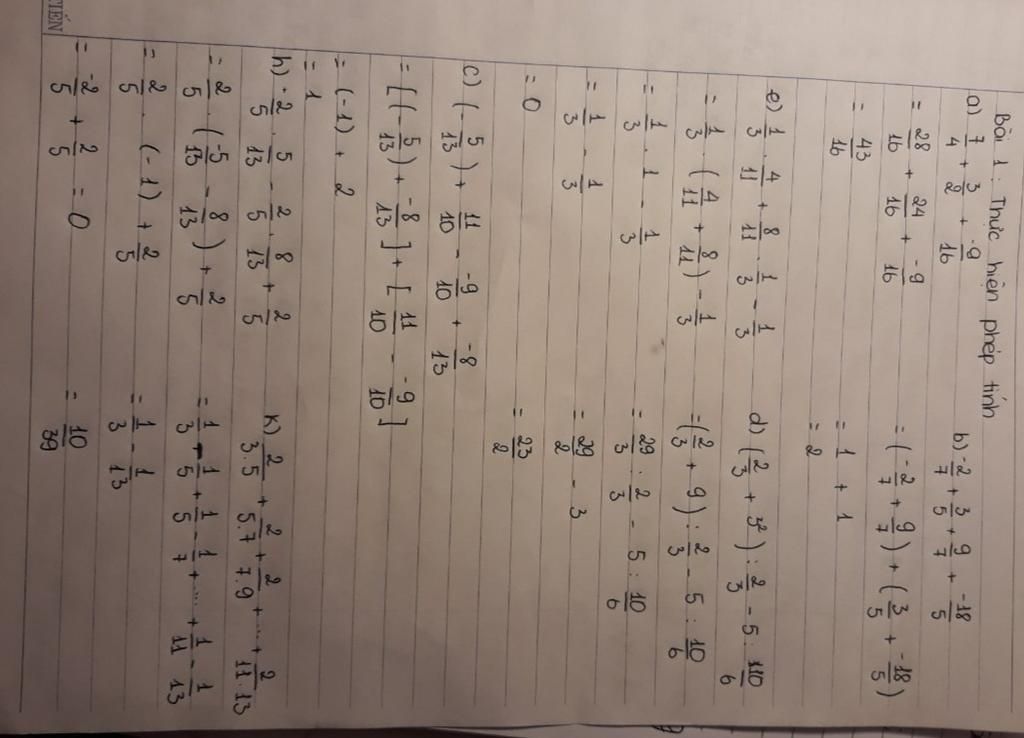 Bài 1: Thực hiện phép tính
a) 7/4 + 3/2 + -9/16
= 28/16 + 24/16 + -9/16
= 43/16
b) -2/7 + 3/5 + 9/7 + -18/5
= (-2/7 + 9/7) + (3/5 + -18/5)
= 1 + 1
= 2
e) 1/3 . 4/11 + 8/11 . 1/3 - 1/3
= 1/3 . (4/11 + 8/11) - 1/3
= 1/3 . 1 - 1/3
= 1/3 - 1/3
= 0
d) (2/3 + 3²) : 2/3 - 5 : 110/6
= (2/3 + 9) : 2/3 - 5 : 10/6
= 29/3 : 2/3 - 5 : 10/6
= 29/2 - 3
= 23/2
c) (-5/13) + 11/10 - -9/10 + -8/13
= [(-5/13) + -8/13] + [11/10 - -9/10]
= (-1) + 2
= 1
h) -2/5 . 5/13 - 2/5 . 8/13 + 2/5
= 2/5 . (-5/13 - 8/13) + 2/5
= 2/5 . (-1) + 2/5
= -2/5 + 2/5 = 0
k) 2/3.5 + 2/5.7 + 2/7.9 + .... + 2/11.13
= 1/3 - 1/5 + 1/5 - 1/7 + .... + 1/11 - 1/13
= 1/3 - 1/13
= 10/39